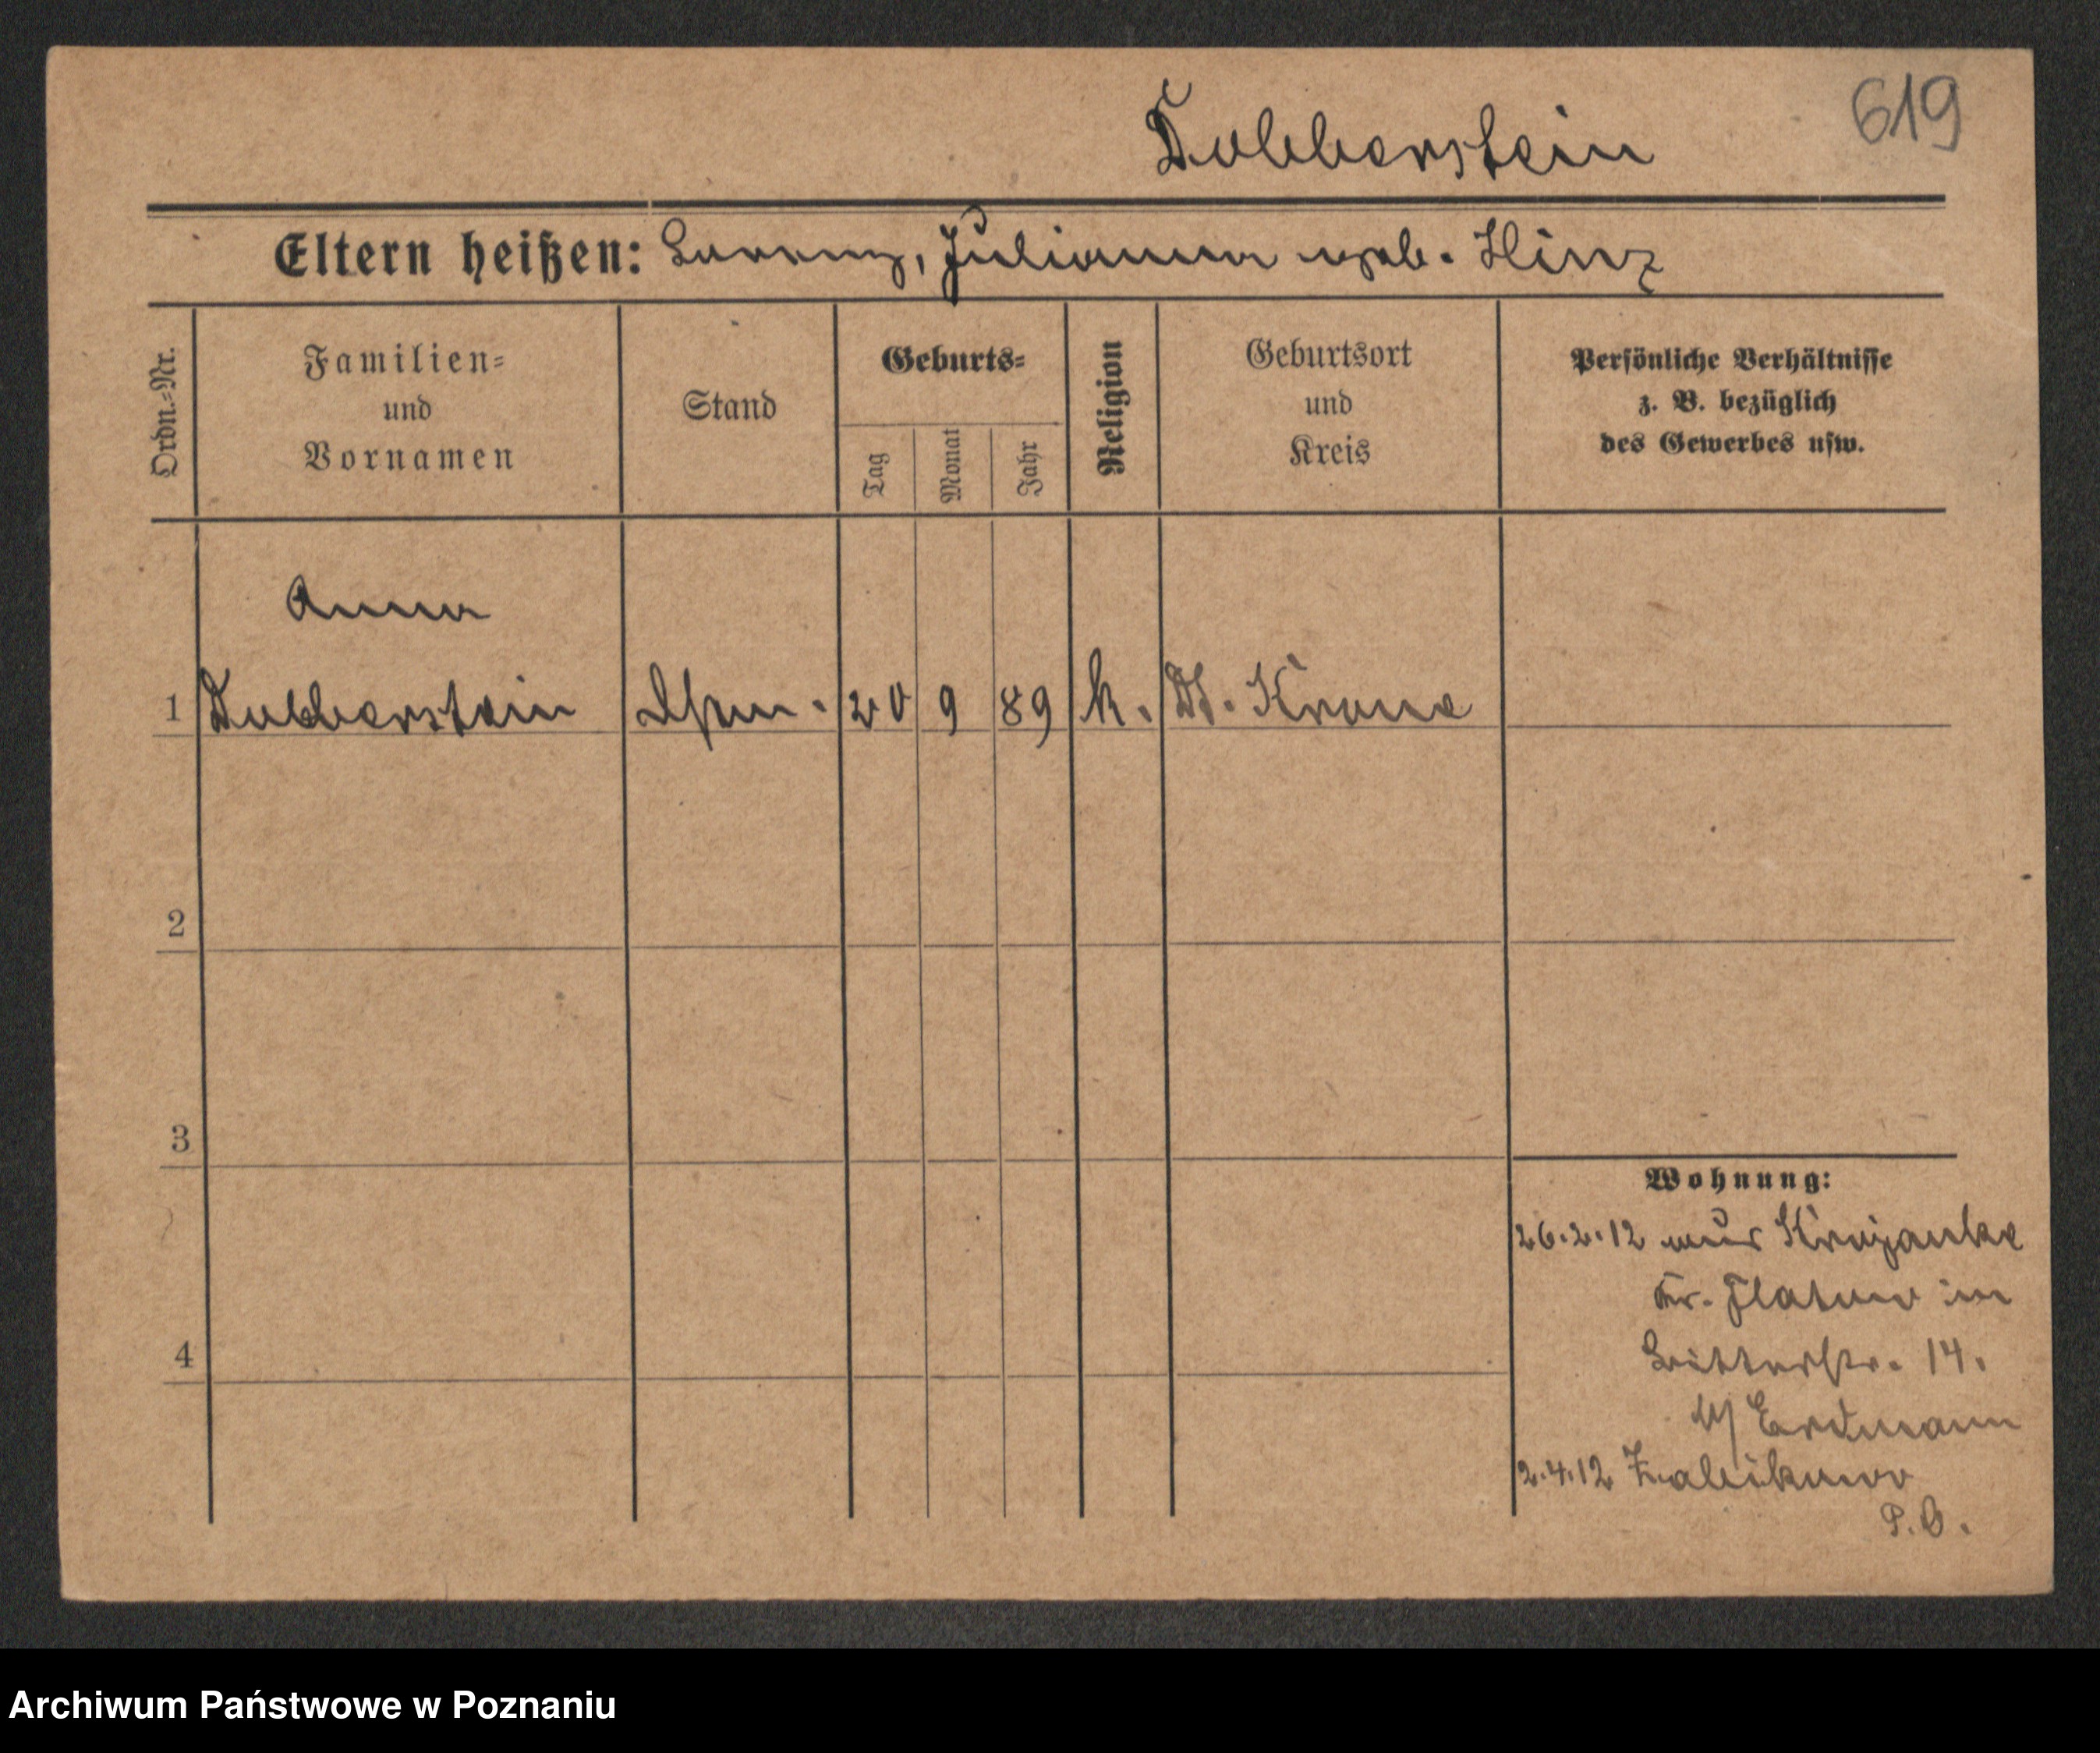 619
Dobberstein
Eltern heißen: Lorenz, Julianna geb. Hinz
Ordn.-Nr.
Familien-
und
Vornamen
Stand
Geburts-
Tag
Monat
Jahr
Religion
Geburtsort
und
Kreis
Persönliche Verhältnisse
z. B. bezüglich
des Gewerbes usw.
Anna
1 Dobberstein 20 9 89 k. Dt. Krone
2
3
4
Wohnung:
26.2.12 aus Krojanke
Kr. Flatow in
Ritterstr. 14.
b/ Erdmann
2.4.12 Zabikowo
P.O.
Archiwum Państwowe w Poznaniu